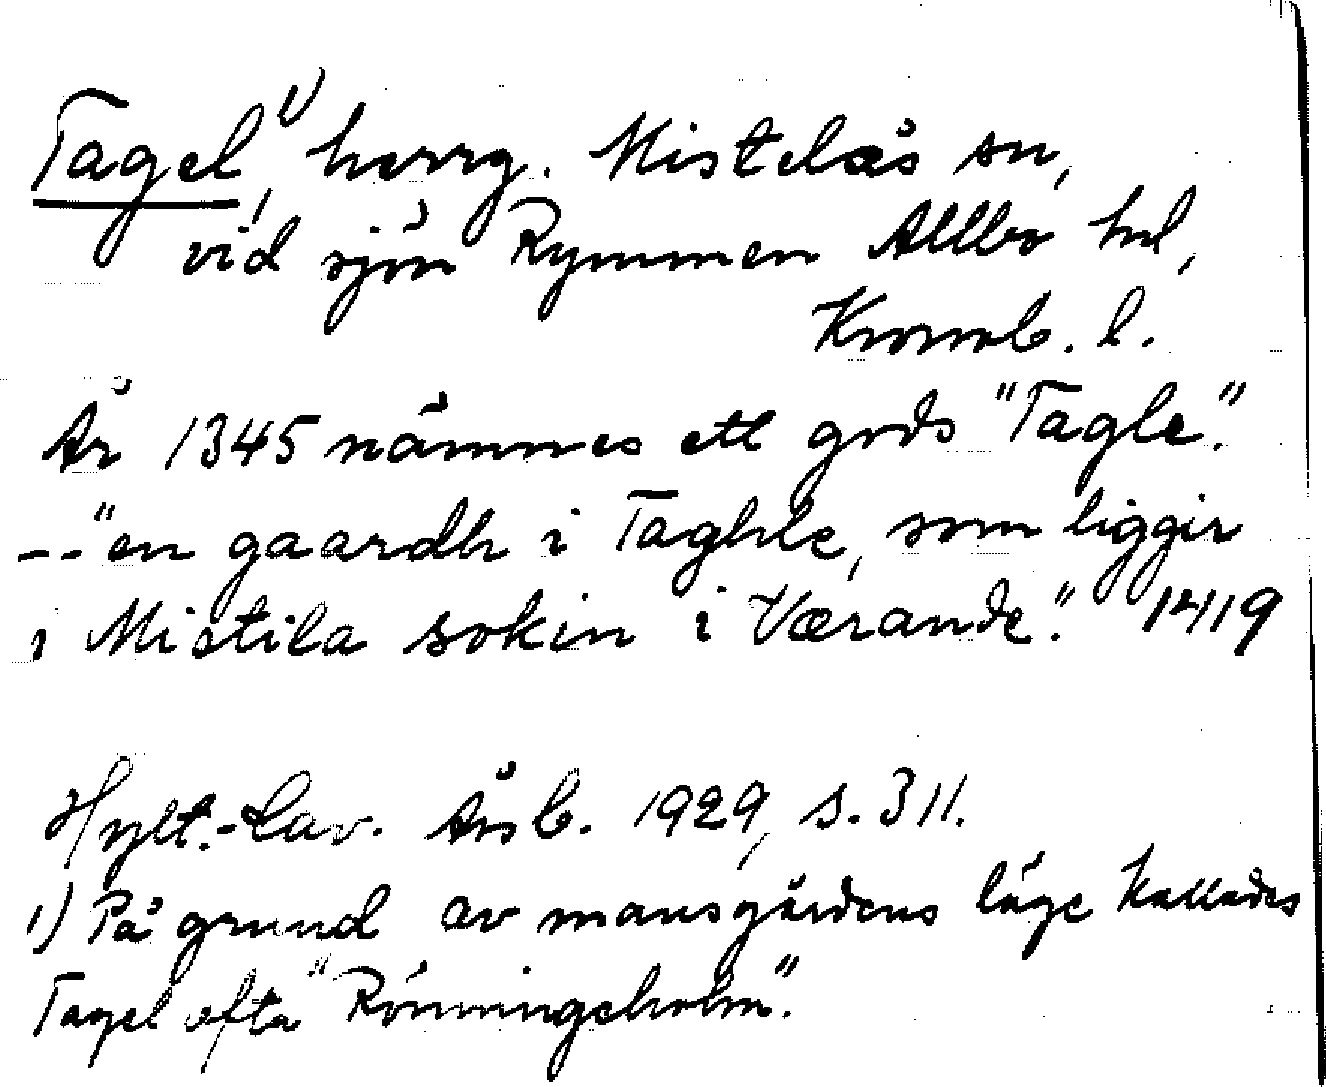 Tagel,¹⁾ herrg. Mistelås sn,
vid sjön Rymmen Allbo hd,
Kronob. l.
År 1345 nämnes ett gods "Tagle."
-- "en gaardh i Taghle, som liggir
i Mistila sokin i Værande." 1419
Hylt.-Cav. Årsb. 1929, s. 311.
1) På grund av mansgårdens läge kallades
Tagel ofta "Rönningeholm".